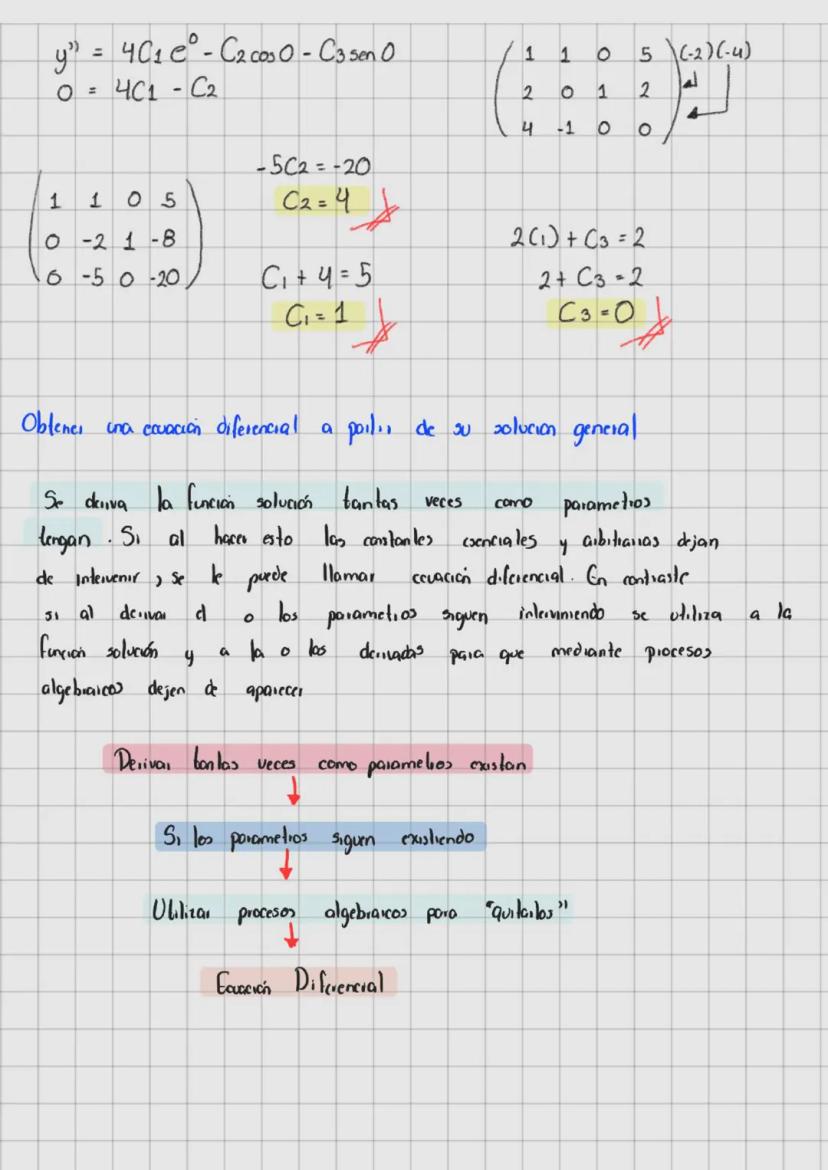 y'' = 4C1 e⁰ - C2 cos 0 - C3 sen 0
0 = 4C1 - C2
1 1 0 5 (-2)(-4)
2 0 1 2
4 -1 0 0
1 1 0 5
0 -2 1 -8
0 -5 0 -20
-5C2 = -20
C2 = 4
C1 + 4 = 5
C1 = 1
2(1) + C3 = 2
2 + C3 = 2
C3 = 0
Obtener una ecuación diferencial a partir de su solución general
Se deriva la función solución tantas veces como parametros
tengan. Si al hacer esto las constantes esenciales y arbitrarias dejan
de intervenir, se le puede llamar ecuación diferencial. En contraste
si al derivar el o los parametros siguen interviniendo se utiliza a la
función solución y a la o las derivadas para que mediante procesos
algebraicos dejen de aparecer
Derivar tantas veces como parametros existan
Si los parametros siguen existiendo
Utilizar procesos algebraicos para "quitarlos"
Ecuación Diferencial